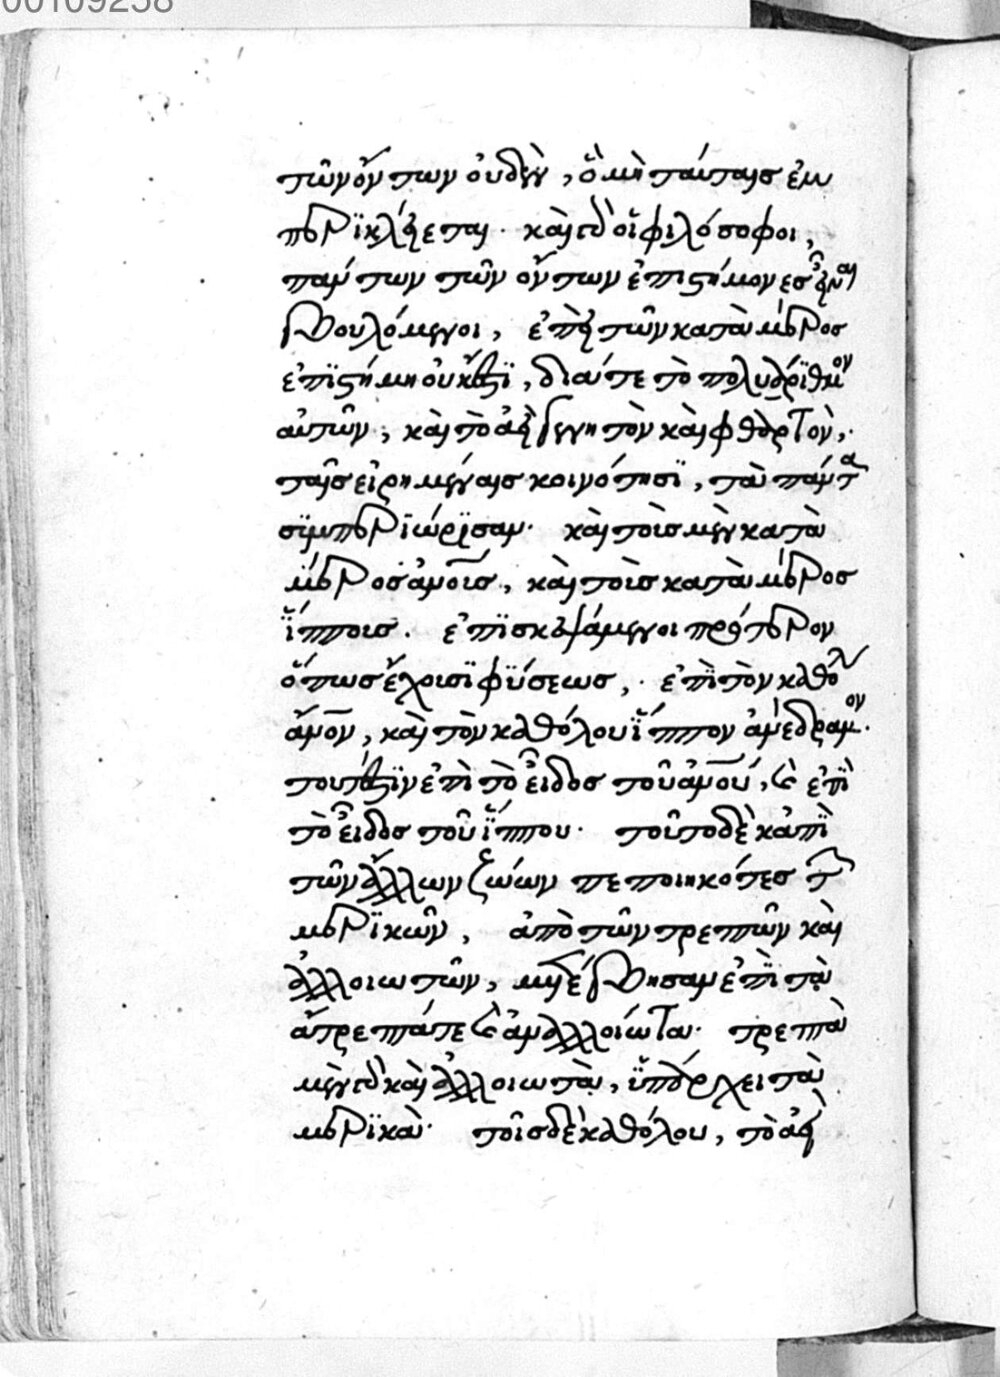 00109258
τῶν ὄντων οὐδὲν, ὃ μὴ ταύταις ἐμ
περϊκλείεται. καὶ ἐπεὶ οἱ φιλόσοφοι,
πάντων τῶν ὄντων ἐπιστήμονες εἶναι
βουλόμενοι, ἐπεὶ τῶν κατὰ μέρος
ἐπϊστήμη οὐκ ἔστϊ, διά τε τὸ πολυάρϊθμον
αὐτῶν, καὶ τὸ ἀεὶ γεννητὸν καὶ φθαρτὸν,
ταῖς εἰρημέναις κοινότησϊ, τὰ πάντα
σϋμπερϊώρϊσαν. καὶ τοῖς μὲν κατὰ
μέρος ἀνοις, καὶ τοῖς κατὰ μέρος
ἵπποις. ἐπϊσκεψάμενοι πρότερον
ὅπως ἔχουσϊ φΰσεως, ἐπὶ τὸν καθόλου
ἄνον, καὶ τὸν καθόλου ἵππον ἀνέδραμον.
τουτέστϊν ἐπὶ τὸ εἶδος τοῦ ἀνου, καὶ ἐπὶ
τὸ εἶδος τοῦ ἵππου. τοῦτο δὲ κἀπὶ
τῶν ἄλλων ζώων πεποιηκότες τῶν
μερϊκῶν, ἀπὸ τῶν τρεπτῶν καὶ
ἀλλοιωτῶν, μετέβησαν ἐπὶ τὰ
ἄτρεπτά τε καὶ ἀναλλοίωτα. τρεπτὰ
μὲν γὰρ καὶ ἀλλοιωτὰ, ὑπάρχει τὰ
μερϊκὰ. τοῖς δὲ καθόλου, τὸ ἀεὶ